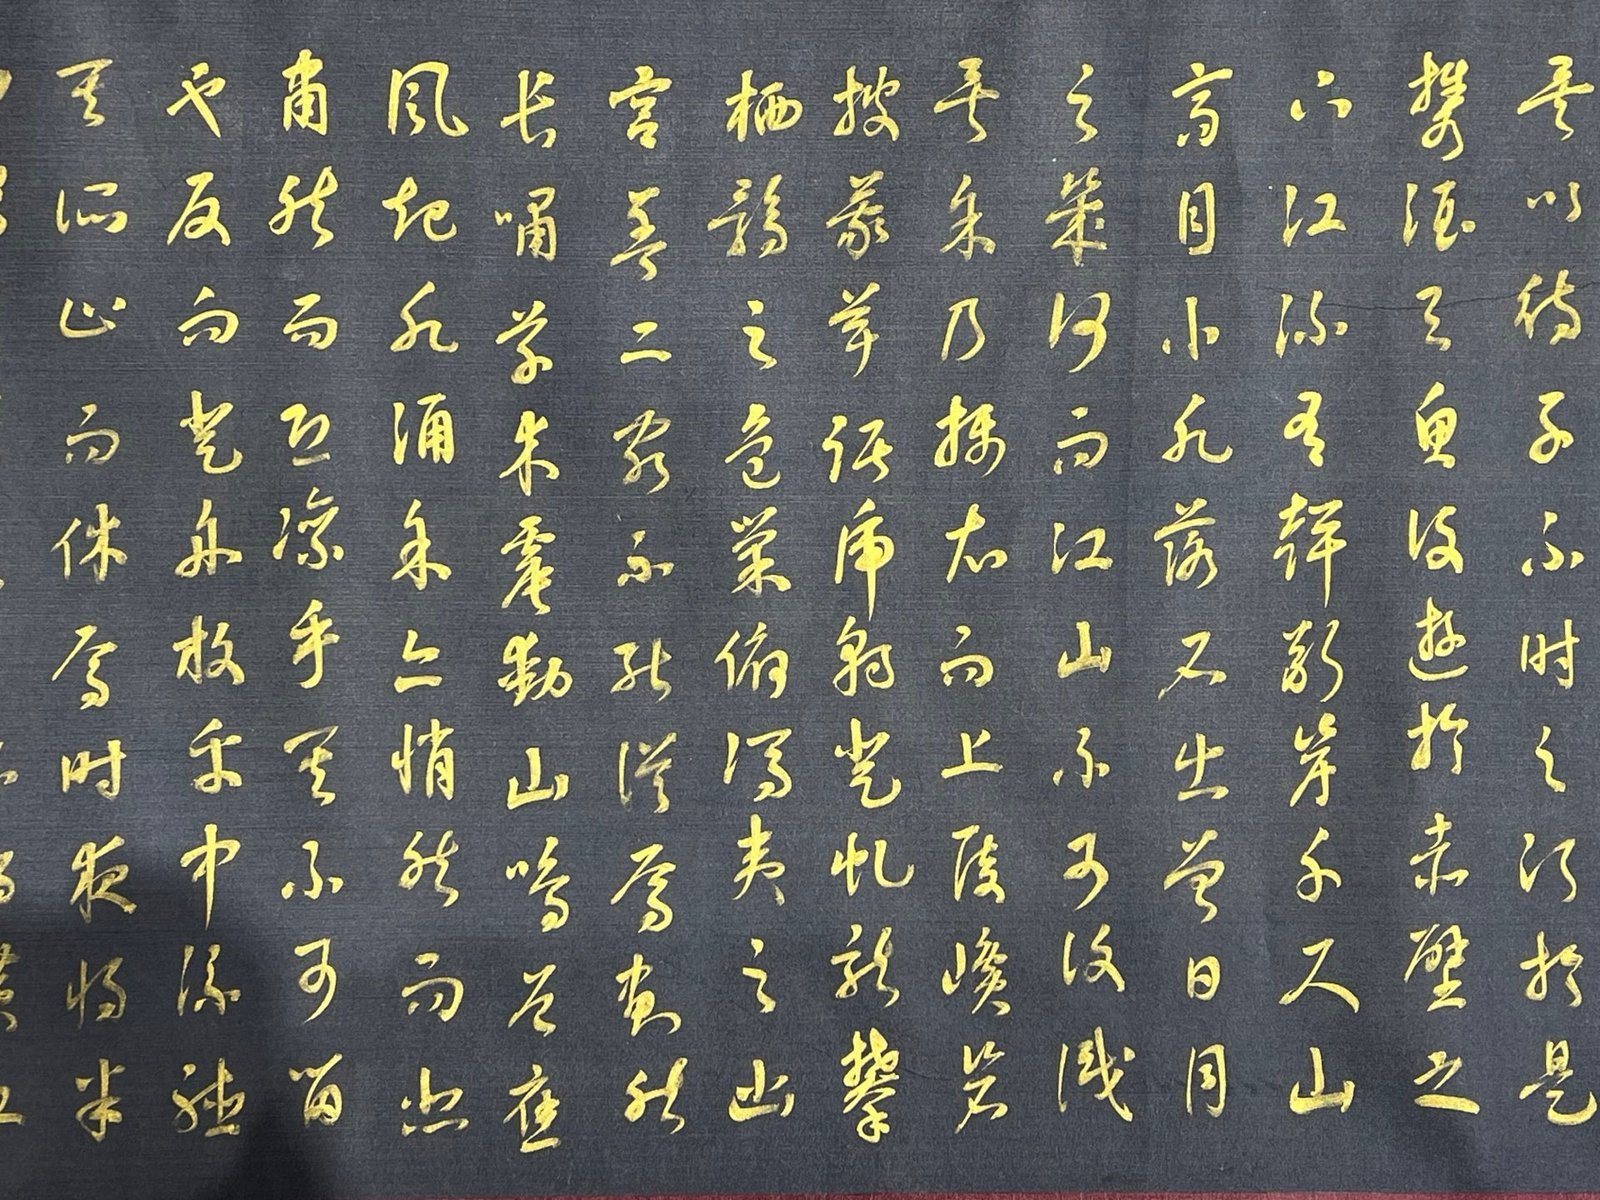 矣以待子不時之須於是
攜酒與魚復遊於赤壁之
下江流有聲斷岸千尺山
高月小水落石出曾日月
之幾何而江山不可復識
矣予乃攝衣而上履巉岩
披蒙茸踞虎豹登虬龍攀
栖鶻之危巢俯馮夷之幽
宮蓋二客不能從焉劃然
長嘯草木震動山鳴谷應
風起水涌予亦悄然而悲
肅然而恐凜乎其不可留
也反而登舟放乎中流聽
其所止而休焉時夜將半